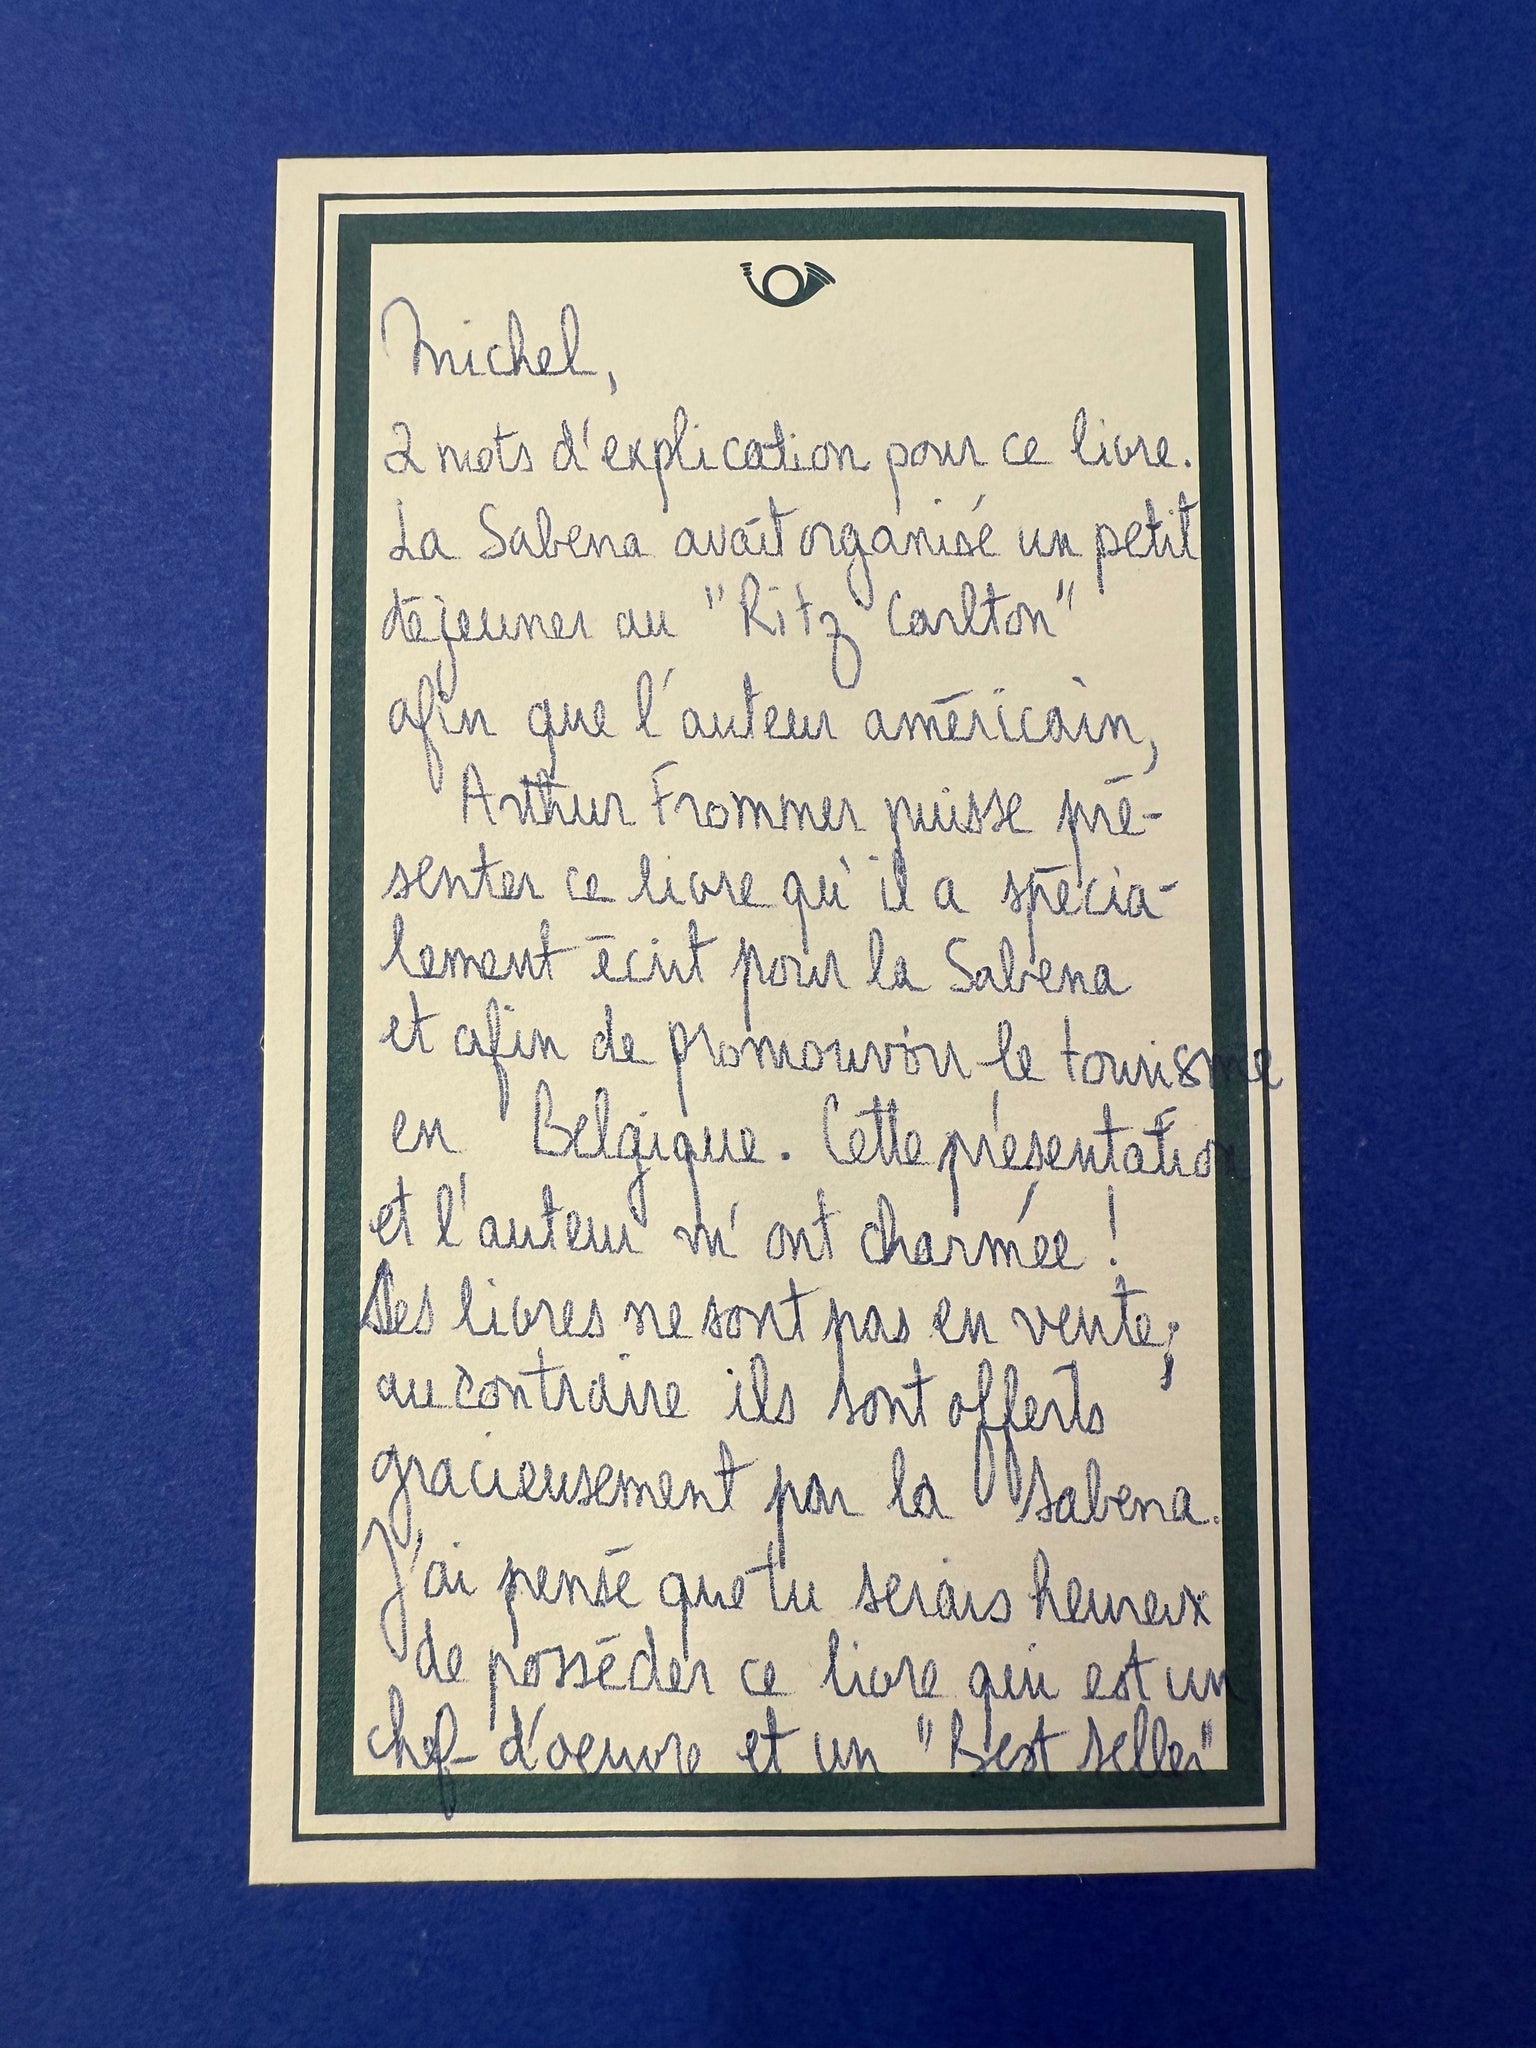 Michel,
2 mots d'explication pour ce livre.
La Sabena avait organisé un petit
déjeuner au "Ritz Carlton"
afin que l'auteur américain,
Arthur Frommer puisse pré-
senter ce livre qu'il a spécia-
lement écrit pour la Sabena
et afin de promouvoir le tourisme
en Belgique. Cette présentation
et l'auteur m'ont charmée !
Les livres ne sont pas en vente;
au contraire ils sont offerts
gracieusement par la Sabena.
J'ai pensé que tu serais heureux
de posséder ce livre qui est un
chef-d'oeuvre et un "Best seller"